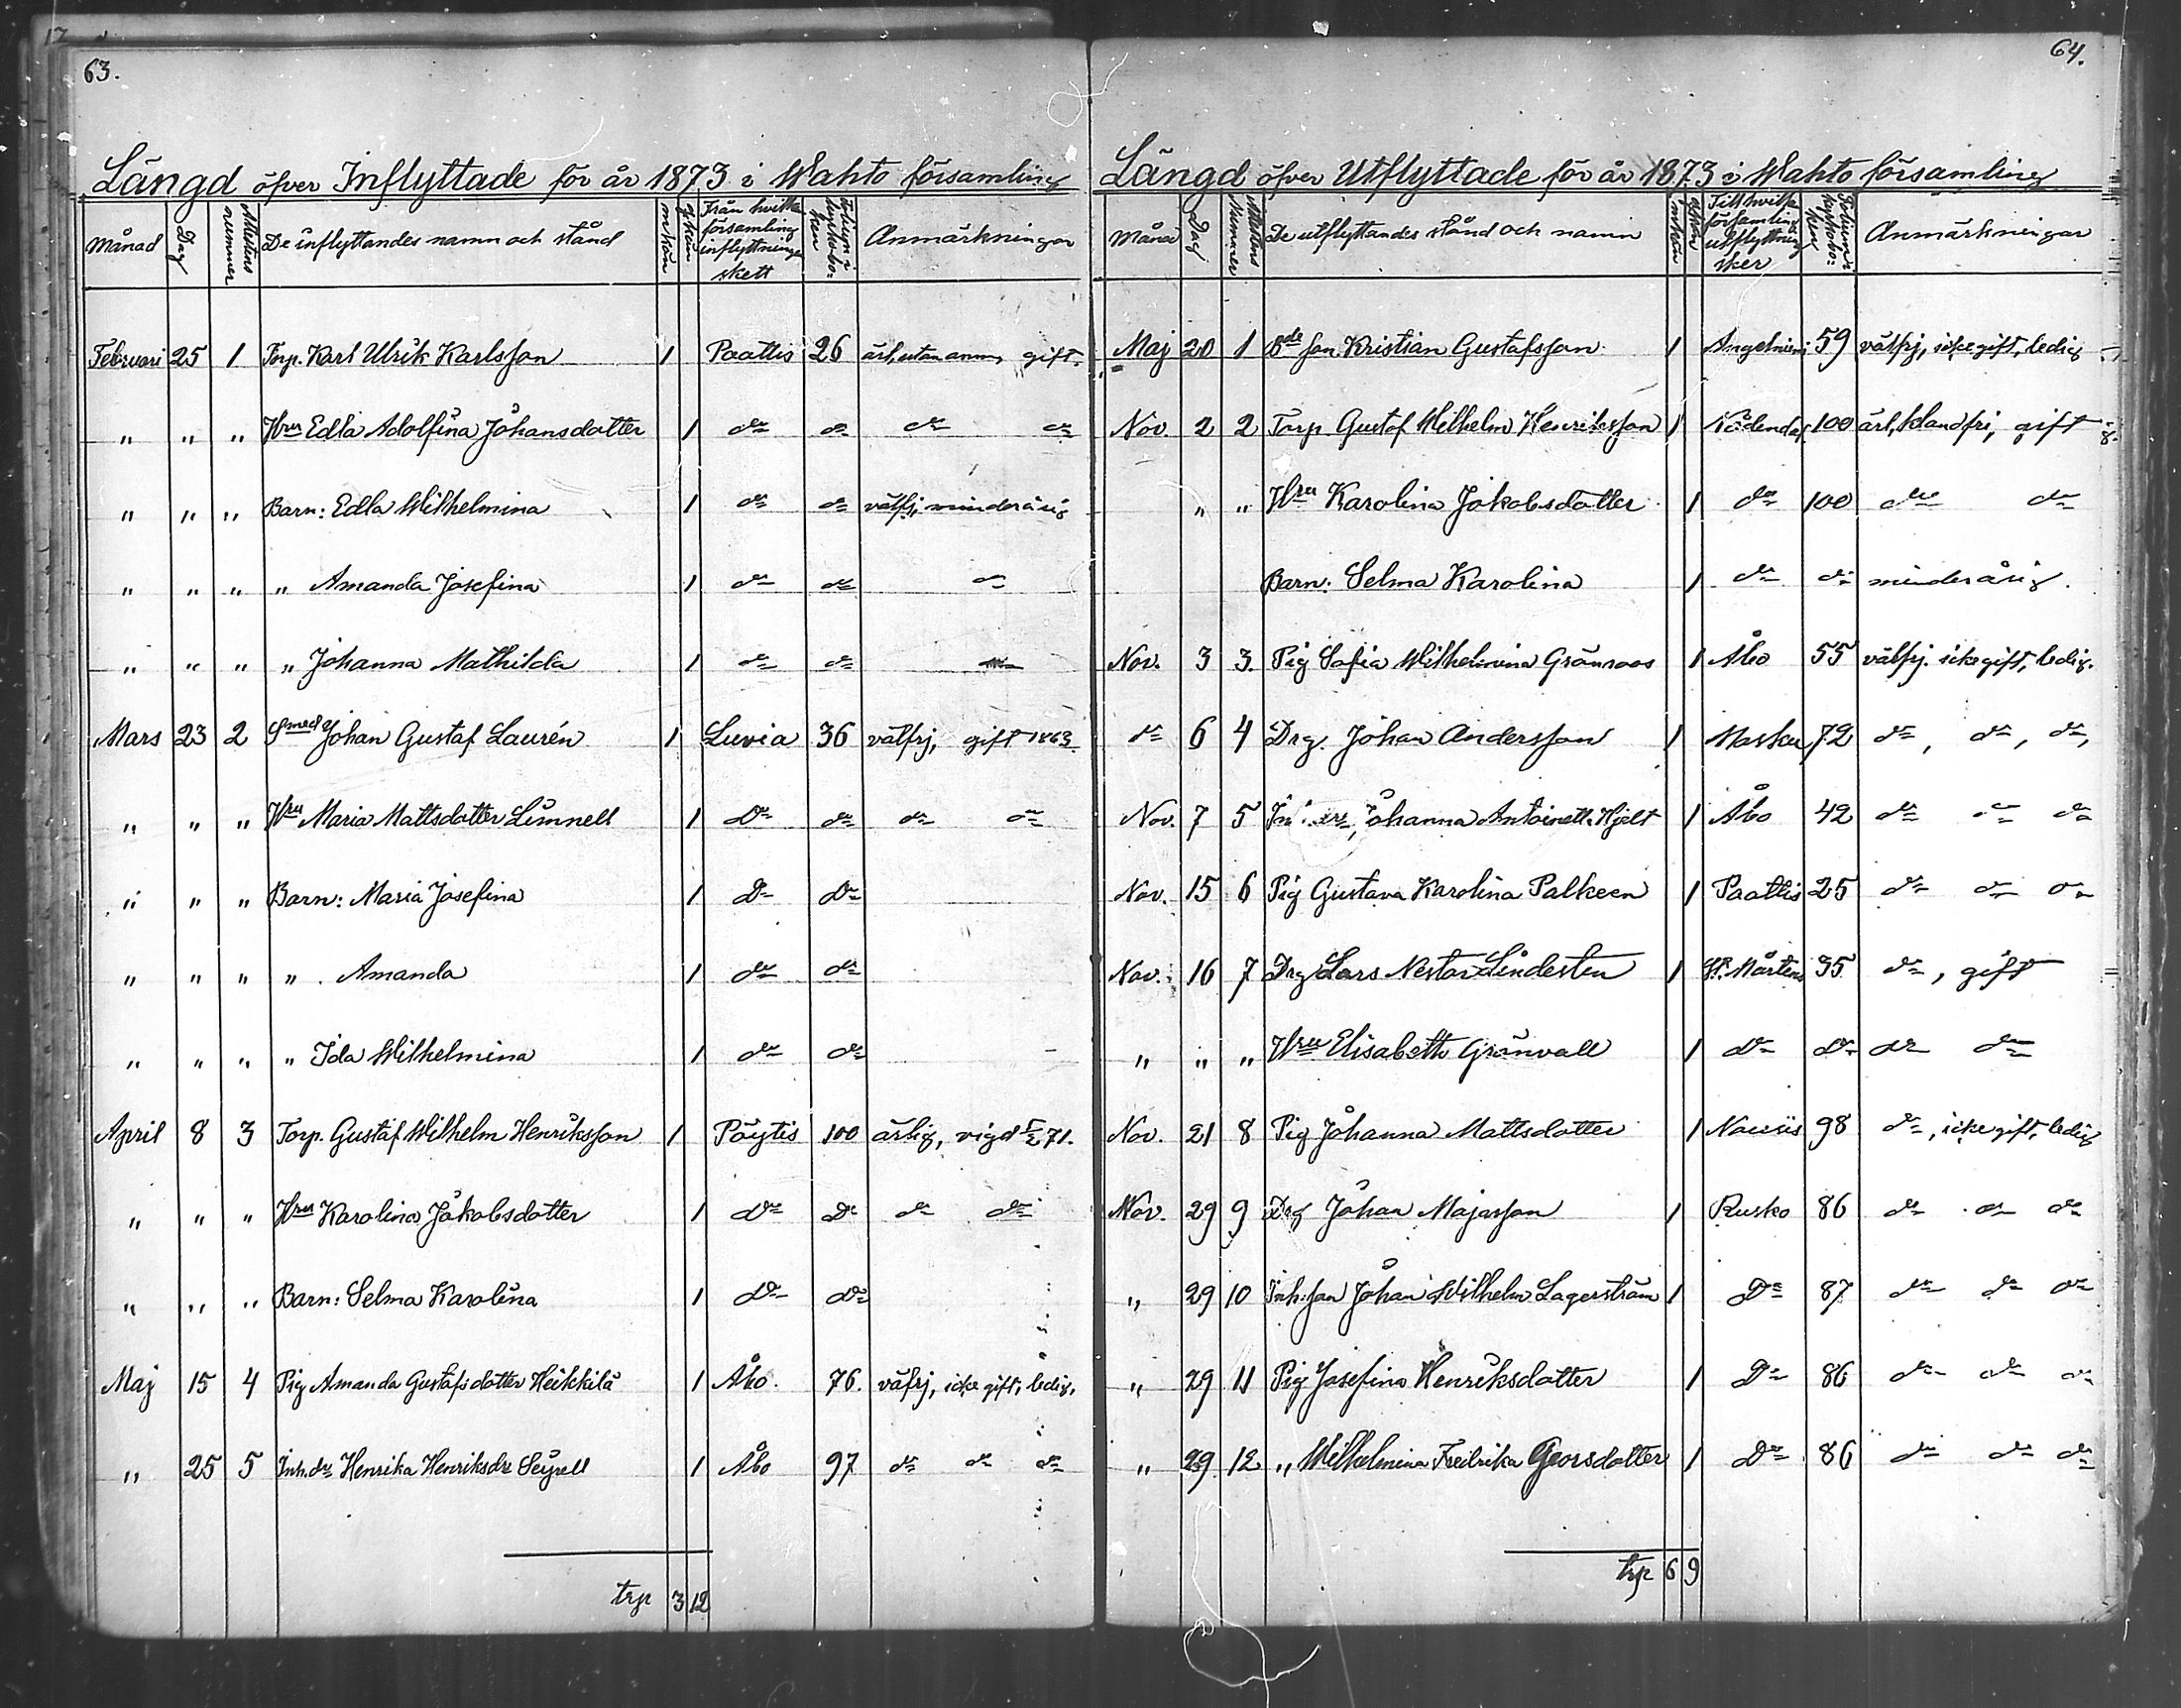 63.
Längd öfver Inflyttade för år 1873 i Wahto församling
Månad Dag Attestens nummer De inflyttandes namn och stånd m. kön q. kön Från hvilken församling inflyttningen skett Folium i kyrkobo: ken Anmärkningar
Februari 25 1 Torp. Karl Ulrik Karlsson 1 Paattis 26 ärl, utan anm, gift.
" " " Hru Edla Adolfina Johansdotter 1 do do do do
" " " Barn: Edla Wilhelmina 1 do do välfrj, minderårig
" " " " Amanda Josefina 1 do do do
" " " " Johanna Mathilda 1 do do do
Mars 23 2 Smed Johan Gustaf Laurén 1 Luvia 36 välfrj, gift 1863
" " " Hru Maria Mattsdotter Limnell 1 Do do do do
" " " Barn: Maria Josefina 1 Do Do
" " " " Amanda 1 do do
" " " " Ida Wilhelmina 1 do do
April 8 3 Torp. Gustaf Wilhelm Henriksson 1 Pöytis 100 ärlig, vigd 71.
" " " Hru Karolina Jakobsdotter 1 Do Do do do
" " " Barn: Selma Karolina 1 Do Do
Maj 15 4 Pig Amanda Gustafsdotter Heikkilä 1 Åbo. 76. väfrj, icke gift, ledig.
" 25 5 Inh. dr Henrika Henriksdr Seyrell 1 Åbo 97 do do do
trp 3 12
64.
Längd öfver Utflyttade för år 1873 i Wahto församling
Månad Dag Attestens Nummer De utflyttandes stånd och namn mankön qkön Till hvilken församling utflyttning sker Folium i kyrkobo: ken Anmärkningar
Maj 20 1 Bde son Kristian Gustafsson 1 Angelniemi 59 välfrj, icke gift, ledig
Nov. 2 2 Torp Gustaf Wilhelm Henriksson 1 Nådendal 100 ärl, klandfri, gift
" " Hru Karolina Jakobsdotter 1 do 100 do do
Barn: Selma Karolina 1 do do minderårig.
Nov. 3 3. Pig Sofia Wilhelmina Grönroos 1 Åbo 55 välfrj. icke gift, ledig.
do 6 4 Drg. Johan Andersson 1 Masku 72 do, do, do,
Nov. 7 5 Johanna Antoinetta Hjelt 1 Åbo 42 do do do
Nov. 15 6 Pig Gustava Karolina Palkeen 1 Paattis 25 do do do
Nov. 16 7 Drg Lars Nestor Lindesten 1 St. Mårtens 35 do, gift
" " " Hru Elisabeth Grönvall 1 do do do do
Nov. 21 8 Pig Johanna Mattsdotter 1 Nousis 98 do, icke gift, ledig
Nov. 29 9 Drg Johan Majasson 1 Rusko 86 do do do
" 29 10 Inh. son Johan Wilhelm Lagerström 1 Do 87 do do do
" 29 11 Pig Josefina Henriksdotter 1 Do 86 do do do
" 29 12 " Wilhelmina Fredrika Georsdotter 1 Do 86 do do do
trp 6 9